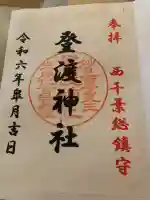 奉拝
西千葉総鎮守
登渡神社
令和六年皐月吉日